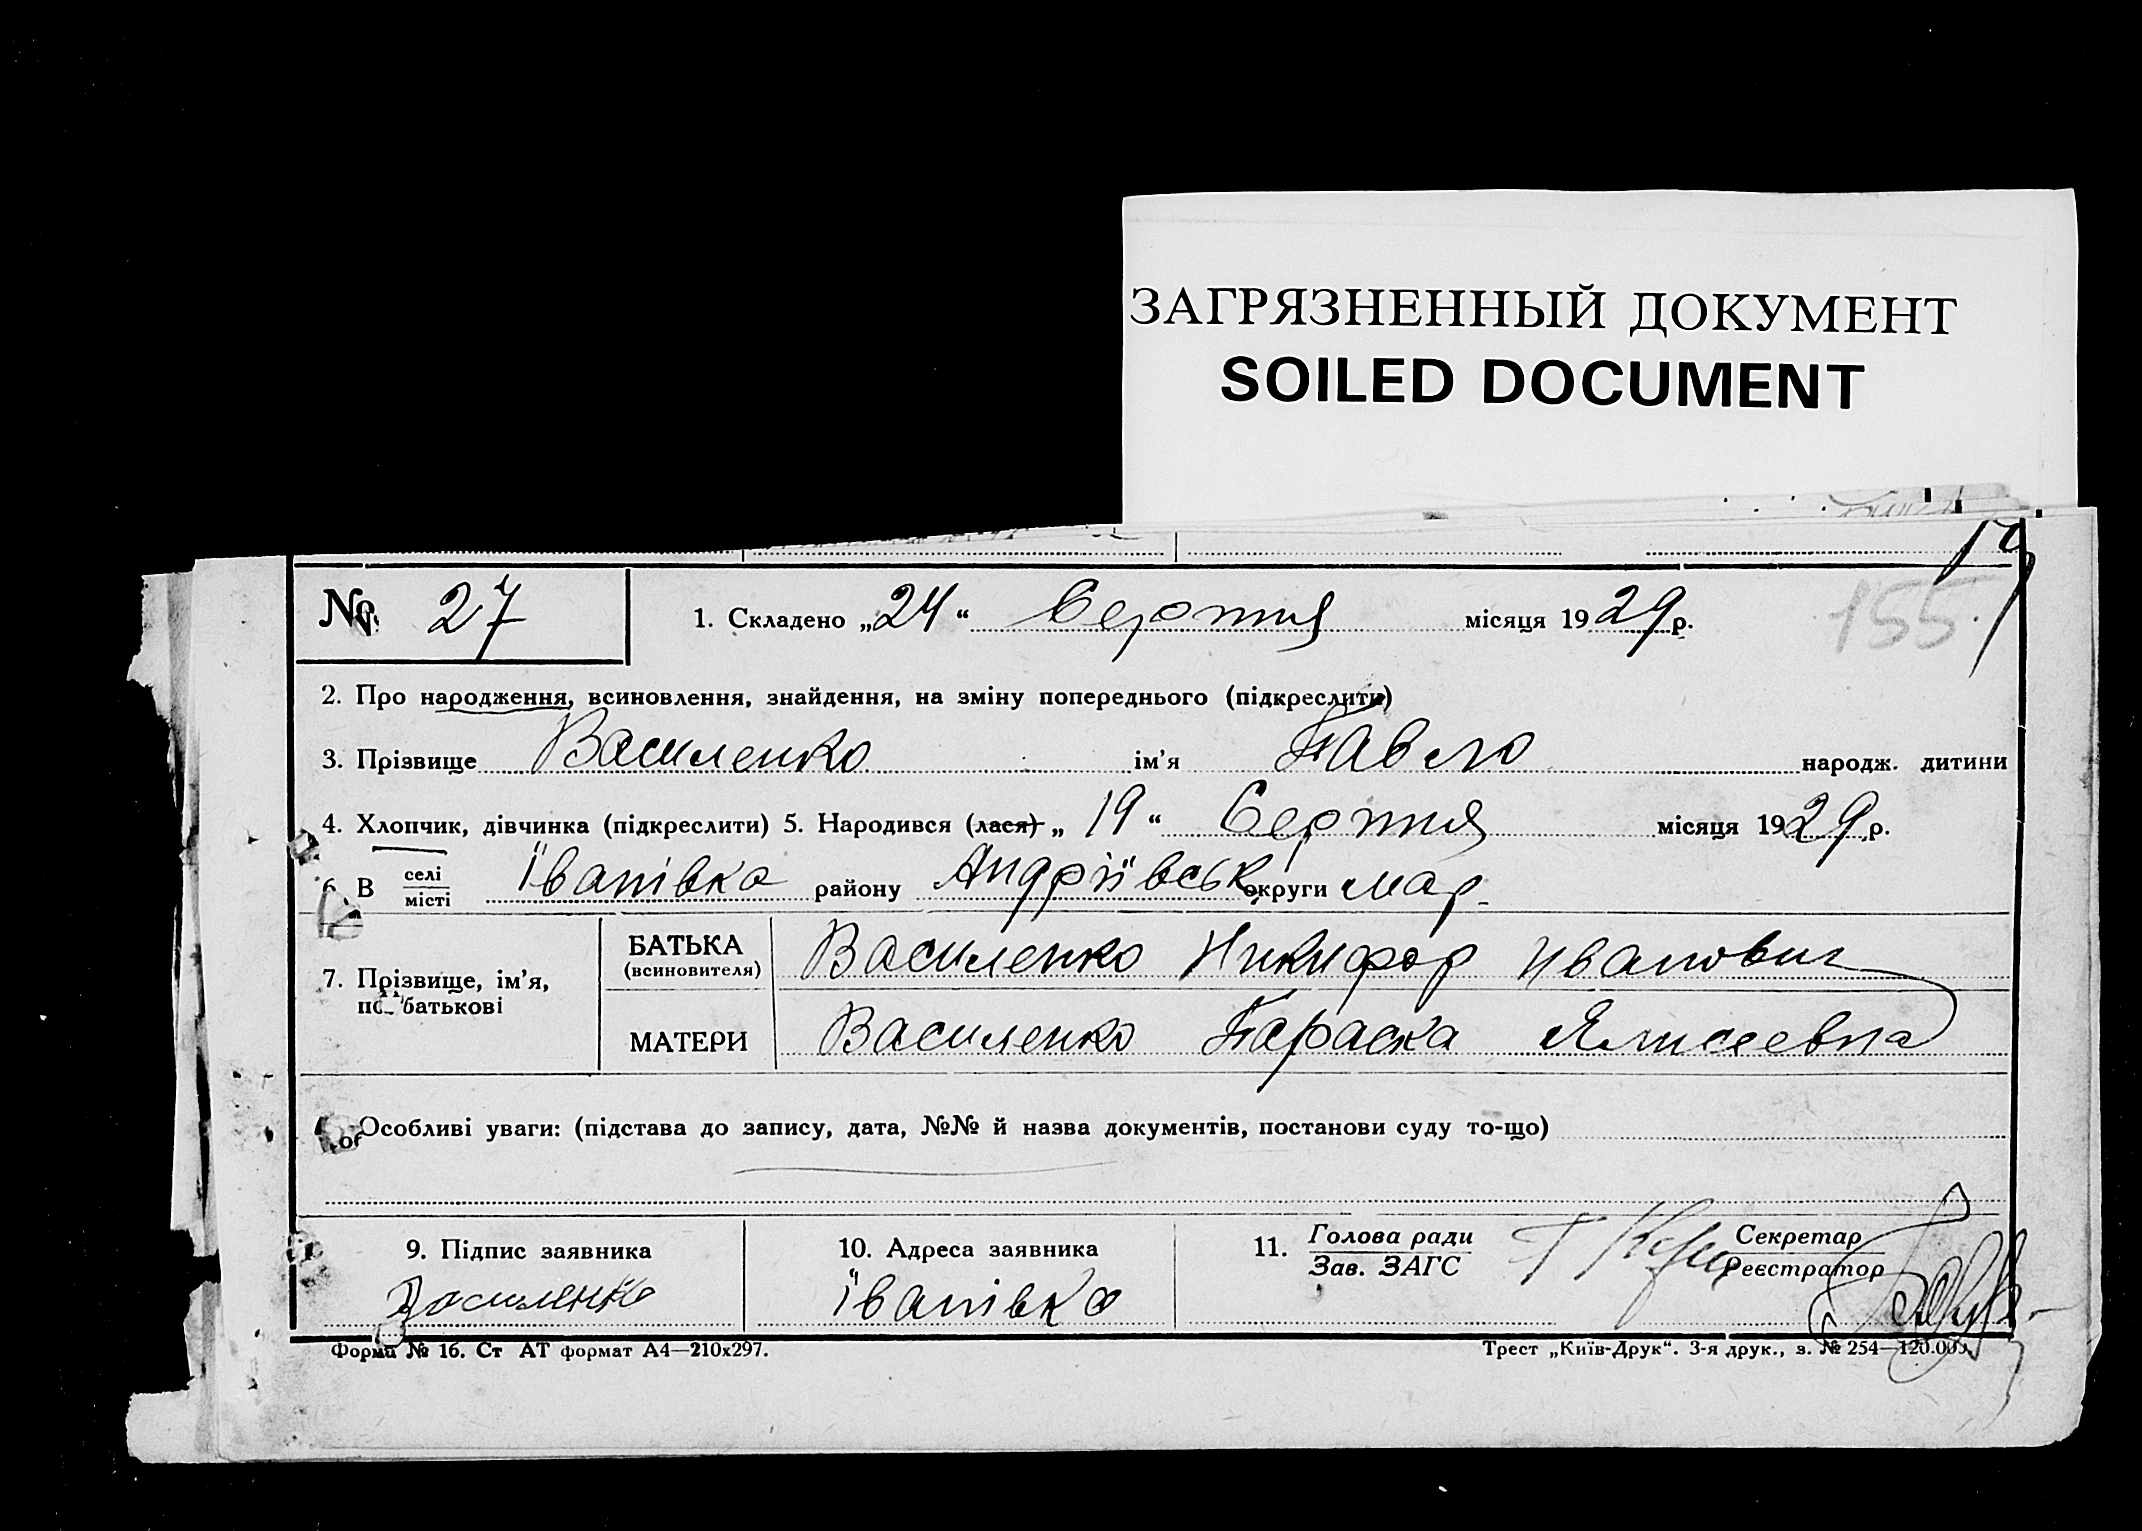 ЗАГРЯЗНЕННЫЙ ДОКУМЕНТ
SOILED DOCUMENT
№ 27
1. Складено „24“ Серпння місяця 1929 р.
155
2. Про народження, всиновлення, знайдення, на зміну попереднього (підкреслити)
3. Прізвище Василенко ім’я Павло народж. дитини
4. Хлопчик, дівчинка (підкреслити) 5. Народився (лася) „ 19 “ Серпння місяця 1929 р.
6. В селі місті Іванівка району Андріївськ округи Мар.
7. Прізвище, ім’я, по батькові
БАТЬКА (всиновителя) Василенко Никифор Иванович
МАТЕРИ Василенко Параска
Особливі уваги: (підстава до запису, дата, №№ й назва документів, постанови суду то-що)
9. Підпис заявника
Василенко
10. Адреса заявника
Іванівка
11. Голова ради
Зав. ЗАГС
Секретар
Реєстратор
Форма № 16. Ст АТ формат А4—210х297.
Трест „Київ-Друк“. 3-я друк., з. № 254—120.000.